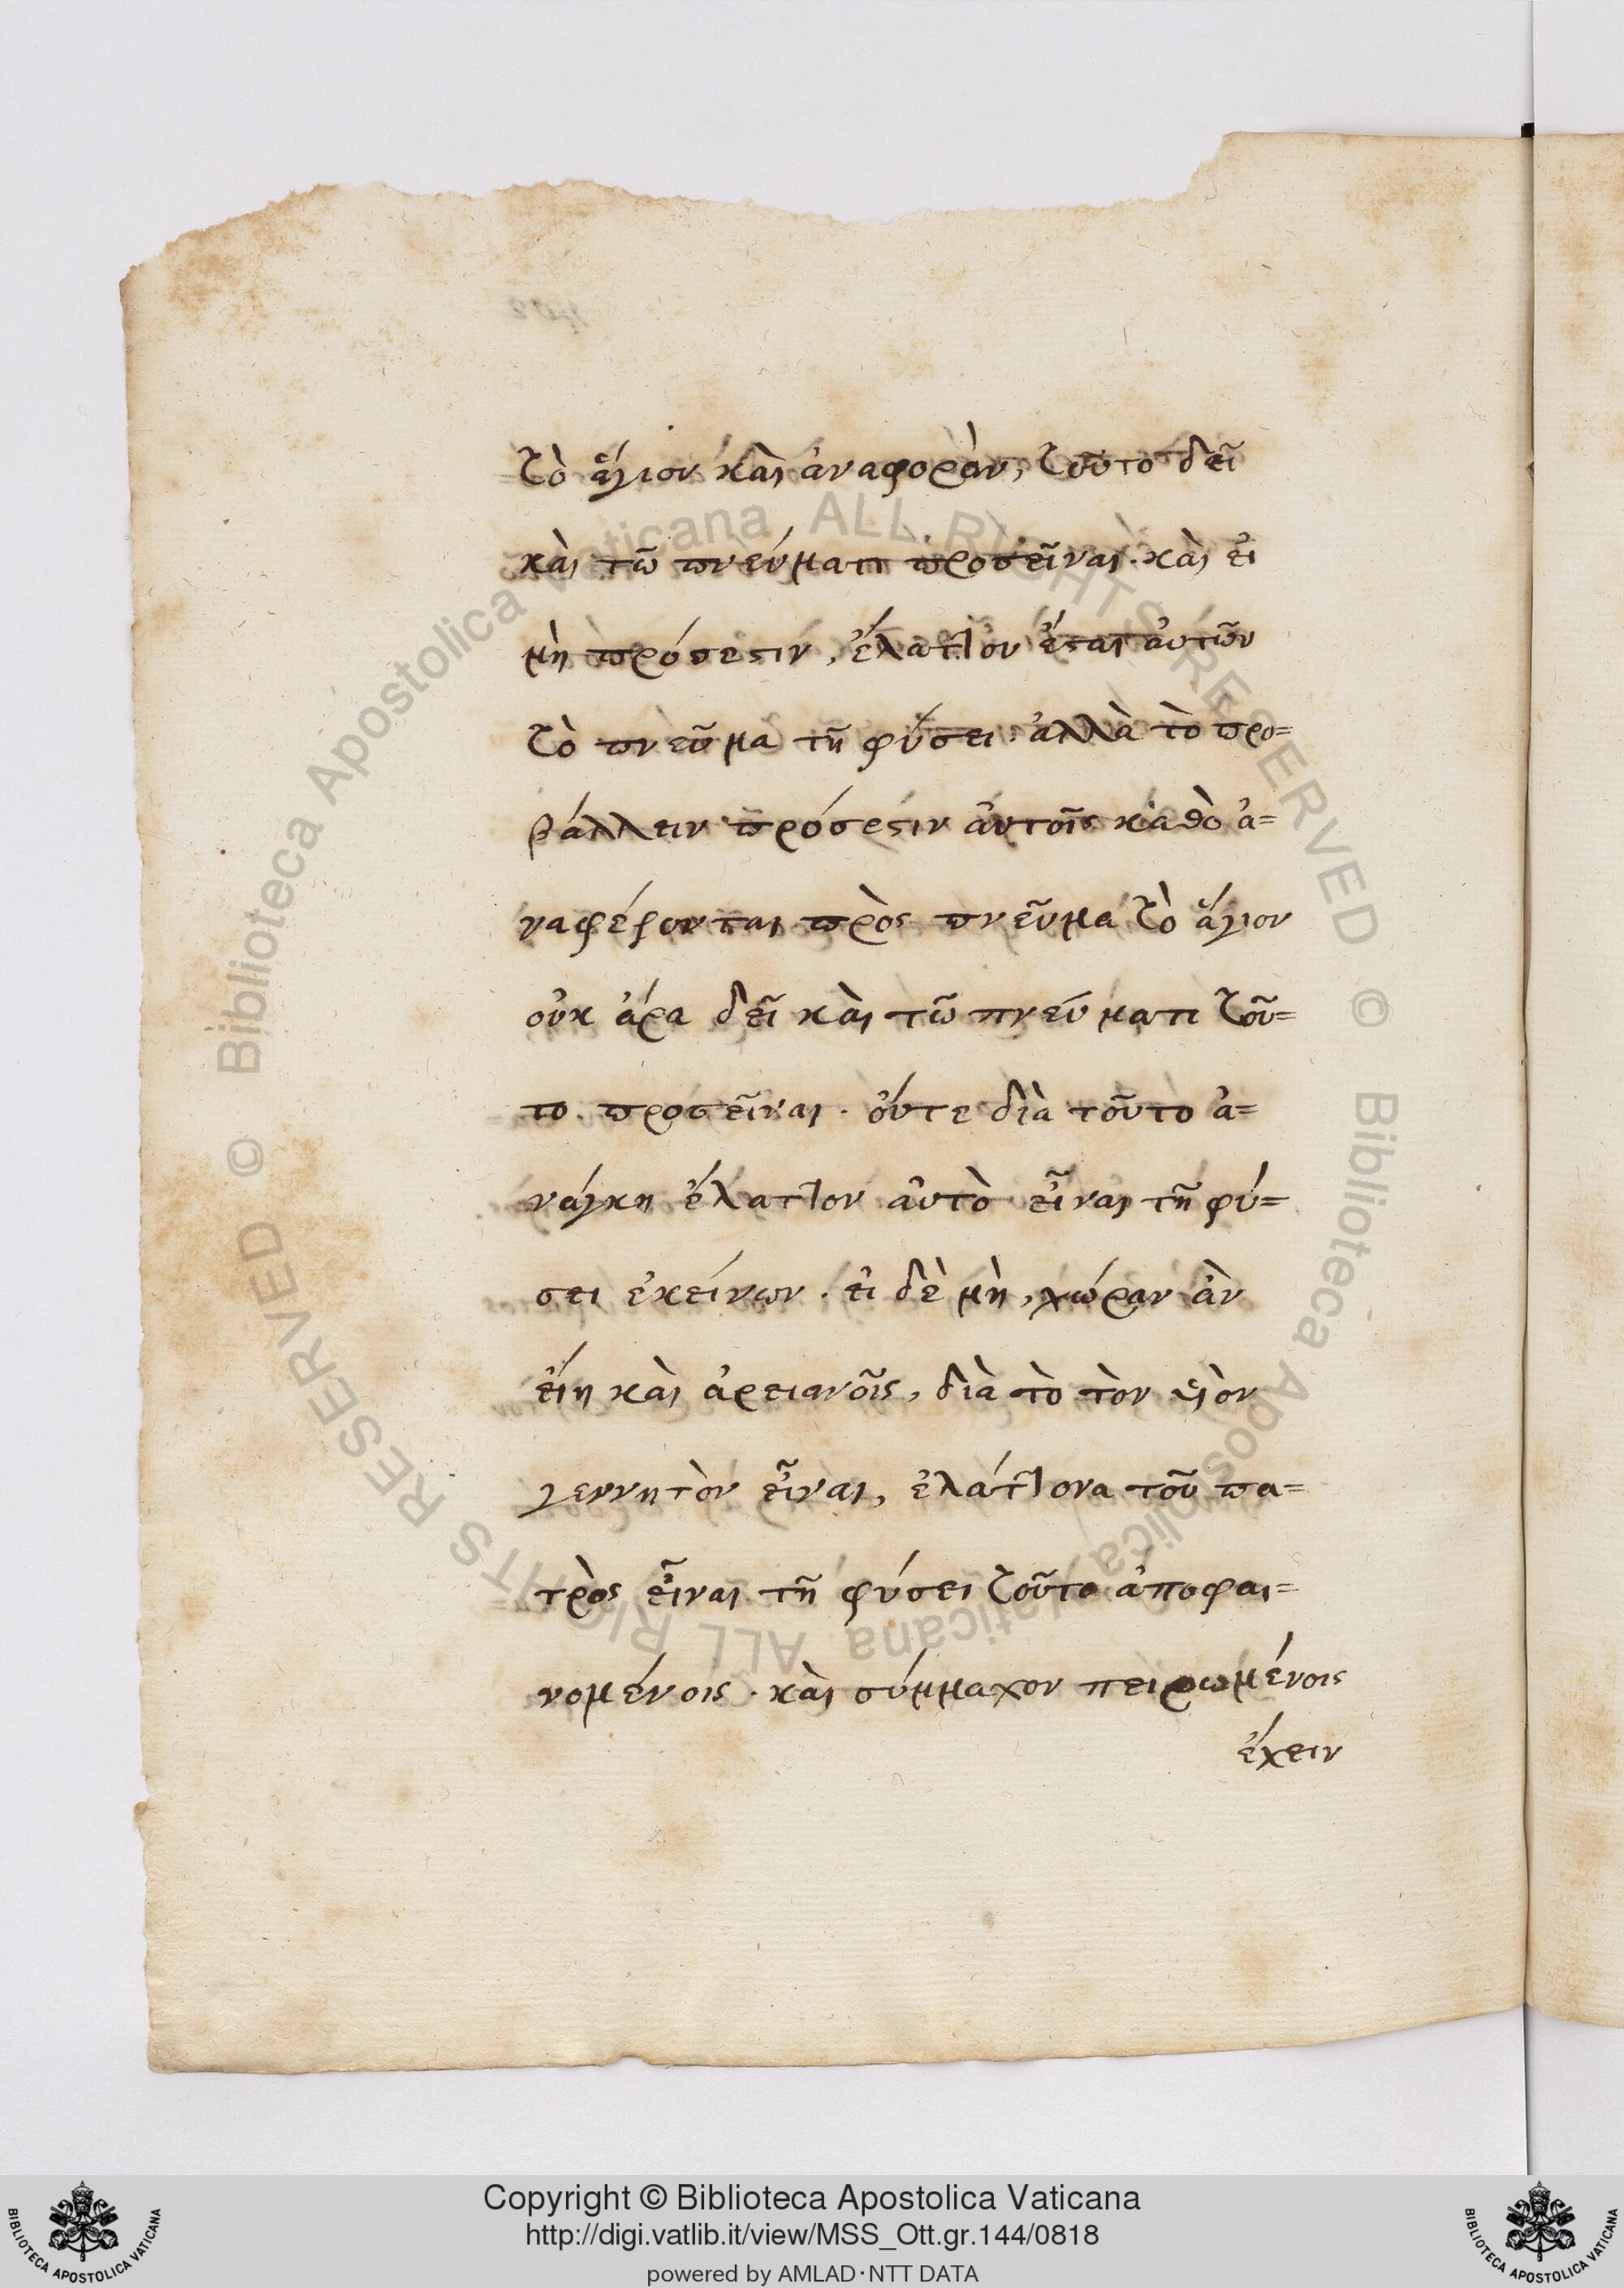 τὸ ἅγιον καὶ ἀναφορὰν, τοῦτο δεῖ
καὶ τῶ πνεύματι προσεῖναι. καὶ εἰ
μὴ πρόσεστιν, ἔλαττον ἔσται αὐτῶν
τὸ πνεῦμα τῆ φύσει. ἀλλὰ τὸ προ=
βάλλειν πρόσεστιν αὐτοῖς καθὸ ἀ=
ναφέρονται πρὸς πνεῦμα τὸ ἅγιον
οὐκ ἄρα δεῖ καὶ τῶ πνεύματι τοῦ=
το προσεῖναι. οὔτε διὰ τοῦτο ἀ=
νάγκη ἔλαττον αὐτὸ εἶναι τῆ φύ=
σει ἐκείνων. εἰ δὲ μὴ, χώραν ἂν
εἴη καὶ ἀρειανοῖς, διὰ τὸ τὸν υἱὸν
γεννητὸν εἶναι, ἐλάττονα τοῦ πα=
τρὸς εἶναι τῆ φύσει τοῦτο ἀποφαι=
νομένοις. καὶ σύμμαχον πειρωμένοις
ἔχειν
Copyright © Biblioteca Apostolica Vaticana
http://digi.vatlib.it/view/MSS_Ott.gr.144/0818
powered by AMLAD·NTT DATA
© Biblioteca Apostolica Vaticana ALL RIGHTS RESERVED
© Biblioteca Apostolica Vaticana ALL RIGHTS RESERVED
BIBLIOTECA APOSTOLICA VATICANA
BIBLIOTECA APOSTOLICA VATICANA